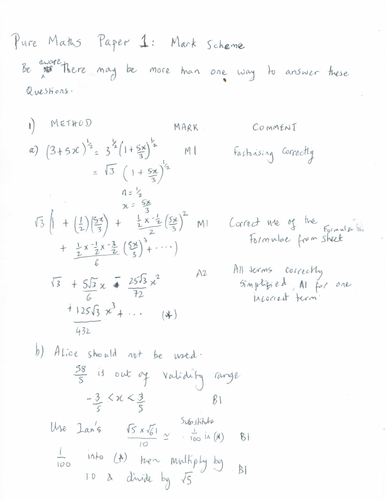 Pure Maths Paper 1: Mark Scheme
Be aware there may be more than one way to answer these
Questions.
1) METHOD MARK COMMENT
a) (3+5x)^{1/2} = 3^{1/2}(1+5x/3)^{1/2} M1 Factorising correctly
= √3 (1 + 5x/3)^{1/2}
n = 1/2
x = 5x/3
√3 (1 + (1/2)(5x/3) + (1/2 x -1/2)/2 (5x/3)^2 M1 Correct use of the
Formulae from Formulation sheet
+ (1/2 x -1/2 x -3/2)/6 (5x/3)^3 + ....)
√3 + 5√3/6 x - 25√3/72 x^2 A2 All terms correctly
simplified, A1 for one
incorrect term
+ 125√3/432 x^3 + ... (*)
b) Alice should not be used.
58/5 is out of validity range
-3/5 < x < 3/5 B1
Use Ian's √5 x √61/10 ≃ Substitute 1/100 in (*) B1
1/100 into (*) then multiply by
10 & divide by √5 B1